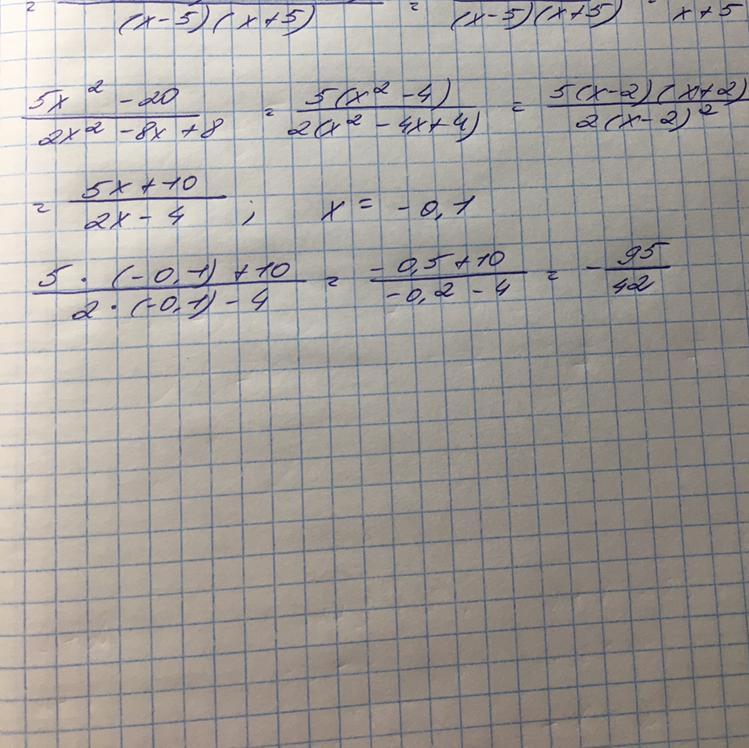 = / (x-5)(x+5) = / (x-5)(x+5) = / x+5
(5x² - 20) / (2x² - 8x + 8) = 5(x² - 4) / 2(x² - 4x + 4) = 5(x-2)(x+2) / 2(x-2)²
= (5x + 10) / (2x - 4) ; x = -0,1
(5 · (-0,1) + 10) / (2 · (-0,1) - 4) = (-0,5 + 10) / (-0,2 - 4) = - 95 / 42